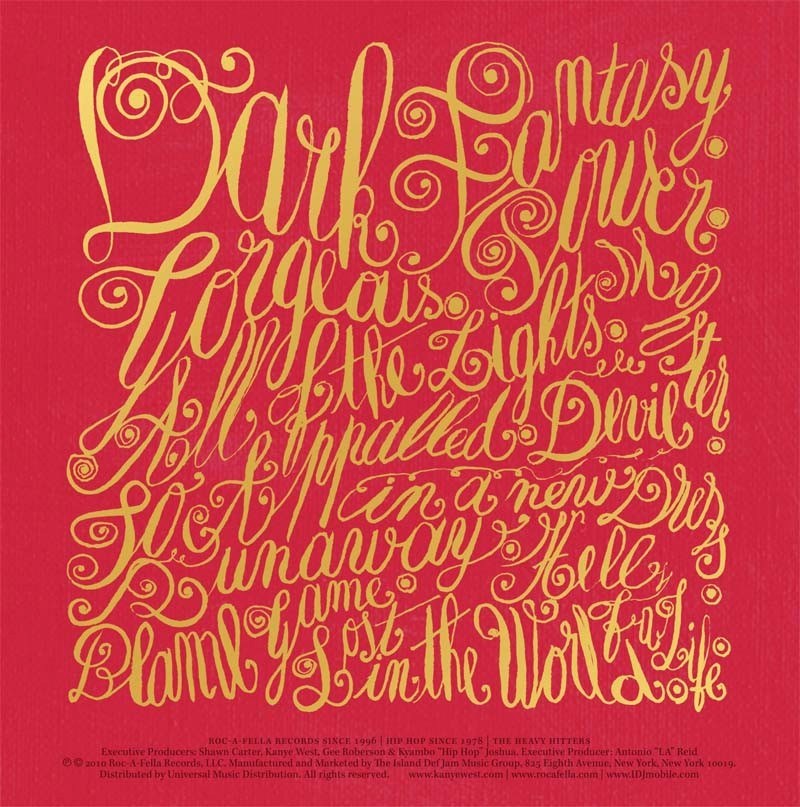 Dark Fantasy.
Gorgeous. Power.
All of the Lights. Monster.
So Appalled. Devil
in a new Dress.
Runaway. Hell
of a Life.
Blame Game.
Lost in the World.
ROC-A-FELLA RECORDS SINCE 1996 | HIP HOP SINCE 1978 | THE HEAVY HITTERS
Executive Producers: Shawn Carter, Kanye West, Gee Roberson & Kyambo "Hip Hop" Joshua. Executive Producer: Antonio "LA" Reid
℗ © 2010 Roc-A-Fella Records, LLC. Manufactured and Marketed by The Island Def Jam Music Group, 825 Eighth Avenue, New York, New York 10019.
Distributed by Universal Music Distribution. All rights reserved. www.kanyewest.com | www.rocafella.com | www.IDJmobile.com